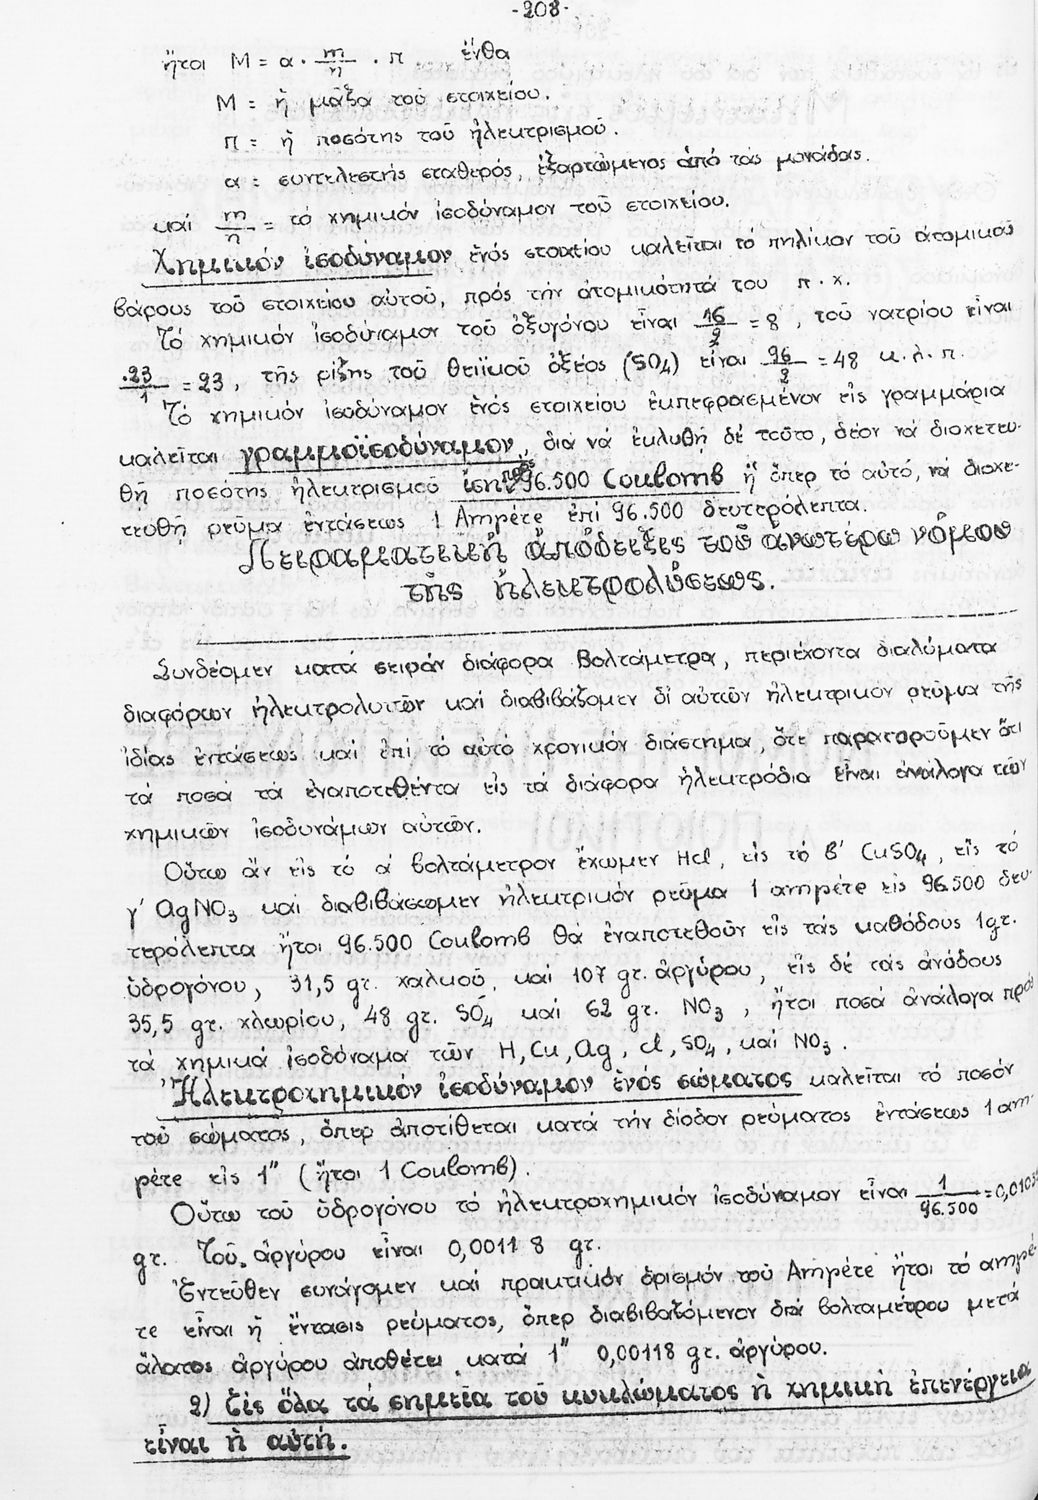 -208-
ἤτοι M = α · m/η · π . ἔνθα
M = ἡ μᾶζα τοῦ στοιχείου.
π = ἡ ποσότης τοῦ ἠλεκτρισμοῦ.
α = συντελεστής σταθερός, ἐξαρτώμενος ἀπό τάς μονάδας.
καί m/η = τό χημικόν ἰσοδύναμον τοῦ στοιχείου.
Χημικόν ἰσοδύναμον ἑνός στοιχείου καλεῖται τό πηλίκον τοῦ ἀτομικοῦ
βάρους τοῦ στοιχείου αὐτοῦ, πρός τήν ἀτομικότητά του π.χ.
Τό χημικόν ἰσοδύναμον τοῦ ὀξυγόνου εἶναι 16/2 = 8, τοῦ νατρίου εἶναι
23/1 = 23, τῆς ρίζης τοῦ θειϊκοῦ ὀξέος (SO4) εἶναι 96/2 = 48 κ.λ.π.
Τό χημικόν ἰσοδύναμον ἑνός στοιχείου ἐκπεφρασμένον εἰς γραμμάρια
καλεῖται γραμμοϊσοδύναμον, διά νά ἐκλυθῇ δέ τοῦτο, δέον νά διοχετευ-
θῇ ποσότης ἠλεκτρισμοῦ ἴση πρός 96.500 Coulomb ἤ ὅπερ τό αὐτό, νά διοχε-
τευθῇ ρεῦμα ἐντάσεως 1 Ampére ἐπί 96.500 δευτερόλεπτα.
Πειραματική ἀπόδειξις τοῦ ἀνωτέρω νόμου
τῆς ἠλεκτρολύσεως.
Συνδέομεν κατά σειράν διάφορα βολτάμετρα, περιέχοντα διαλύματα
διαφόρων ἠλεκτρολυτῶν καί διαβιβάζομεν δι αὐτῶν ἠλεκτρικόν ρεῦμα τῆς
ἰδίας ἐντάσεως καί ἐπί τό αὐτό χρονικόν διάστημα, ὅτε παρατοροῦμεν ὅτι
τά ποσά τά ἐναποτεθέντα εἰς τά διάφορα ἠλεκτρόδια εἶναι ἀνάλογα τῶν
χημικῶν ἰσοδυνάμων αὐτῶν.
Οὕτω ἄν εἰς τό α' βολτάμετρον ἔχωμεν Hcl, εἰς τό β' CuSO4, εἰς τό
γ' AgNO3 καί διαβιβάσωμεν ἠλεκτρικόν ρεῦμα 1 ampére εἰς 96.500 δευ-
τερόλεπτα ἤτοι 96.500 Coulomb θά ἐναποτεθοῦν εἰς τάς καθόδους 1gr.
ὑδρογόνου, 31,5 gr. χαλκοῦ, καί 107 gr. ἀργύρου, εἰς δέ τάς ἀνόδους
35,5 gr. χλωρίου, 48 gr. SO4 καί 62 gr. NO3, ἤτοι ποσά ἀνάλογα πρός
τά χημικά ἰσοδύναμα τῶν H, Cu, Ag, cl, SO4, καί NO3.
Ἠλεκτροχημικόν ἰσοδύναμον ἑνός σώματος καλεῖται τό ποσόν
τοῦ σώματος, ὅπερ ἀποτίθεται κατά τήν δίοδον ρεύματος ἐντάσεως 1 am-
père εἰς 1" (ἤτοι 1 Coulomb).
Οὕτω τοῦ ὑδρογόνου τό ἠλεκτροχημικόν ἰσοδύναμον εἶναι 1/96.500 =
gr. Τοῦ ἀργύρου εἶναι 0,00118 gr.
Ἐντεῦθεν συνάγομεν καί πρακτικόν ὁρισμόν τοῦ Ampére ἤτοι τό ampé-
re εἶναι ἡ ἔντασις ρεύματος, ὅπερ διαβιβαζόμενον διά βολταμέτρου μετά
ἅλατος ἀργύρου ἀποθέτει κατά 1" 0,00118 gr. ἀργύρου.
2) Εἰς ὅλα τά σημεῖα τοῦ κυκλώματος ἡ χημική ἐπενέργεια
εἶναι ἡ αὐτή.